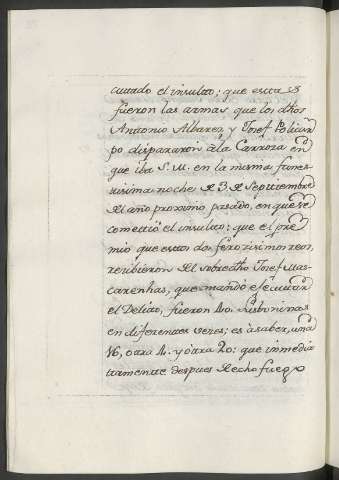 cutado el insulto; que estas
fueron las armas que los dhõs
Antonio Albarez, y Josef Policar
po dispararon â la Carroza en
que iba S. M. en la misma funes
tisima noche de 3 de Septiembre
del año proximo pasado, en que se
cometiò el insulto: que el pre
mio que estos dos ferozisimos reos,
recibieron del sobredho Josef Mas
carenhas, que mandó executar
el Delito, fueron 40. Lisboninas
en diferentes veces; es à saber, una
16, otra 4. y otra 20: que inmedia
tamente despues de echo fuego